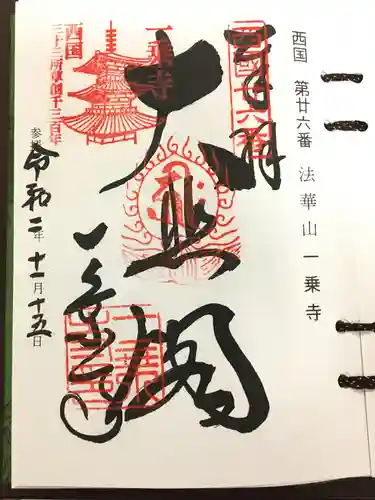 西国 第廿六番 法華山 一乗寺
西國廿六番
奉拝
大悲閣
一乗寺
一乗寺
西国
三十三所草創千三百年
令和二年十一月十五日